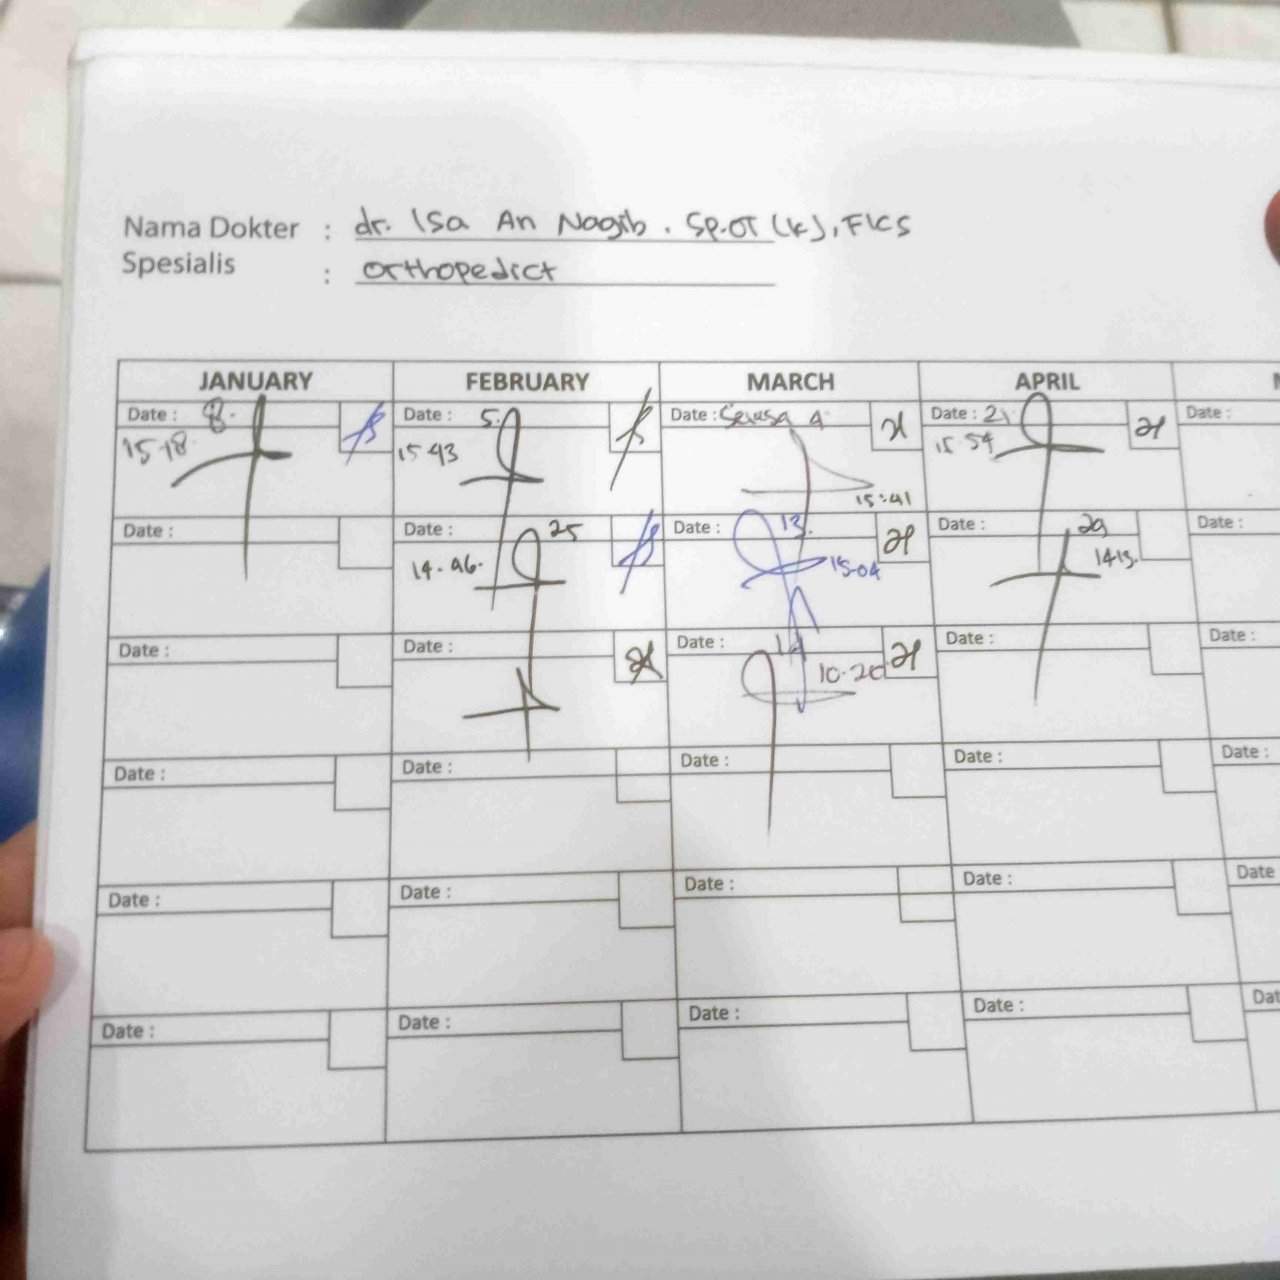 Nama Dokter : dr. Isa An Nagib. Sp.OT (K), FICS
Spesialis : Orthopedict
JANUARY FEBRUARY MARCH APRIL
Date : 8. Date : 5. Date : Selasa 4 Date : 21 Date :
15-18 15 43 15:41 15 54
Date : Date : 25 Date : 13. Date : 29 Date :
14-46. 15-04 1413.
Date : Date : Date : 14 Date : Date :
10-20
Date : Date : Date : Date : Date :
Date : Date : Date : Date : Date
Date : Date : Date : Date : Dat